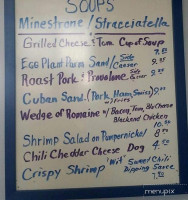 SOUPS
Minestrone / Stracciatella
Grilled Cheese & Tom Cup of Soup
Egg Plant Parm Sand/ Side Caesar
Roast Pork & Provolone Side Caesar
Cuban Sand. (Pork, Ham, Swiss)
w/ Fries
Wedge of Romaine w/ Bacon, Tom, Blu Cheese
Blackend Chicken
10.
Shrimp Salad on Pumpernickle
Chili Cheddar Cheese Dog
Crispy Shrimp 'Wit' Sweet Chili
Dipping Sauce
menupix